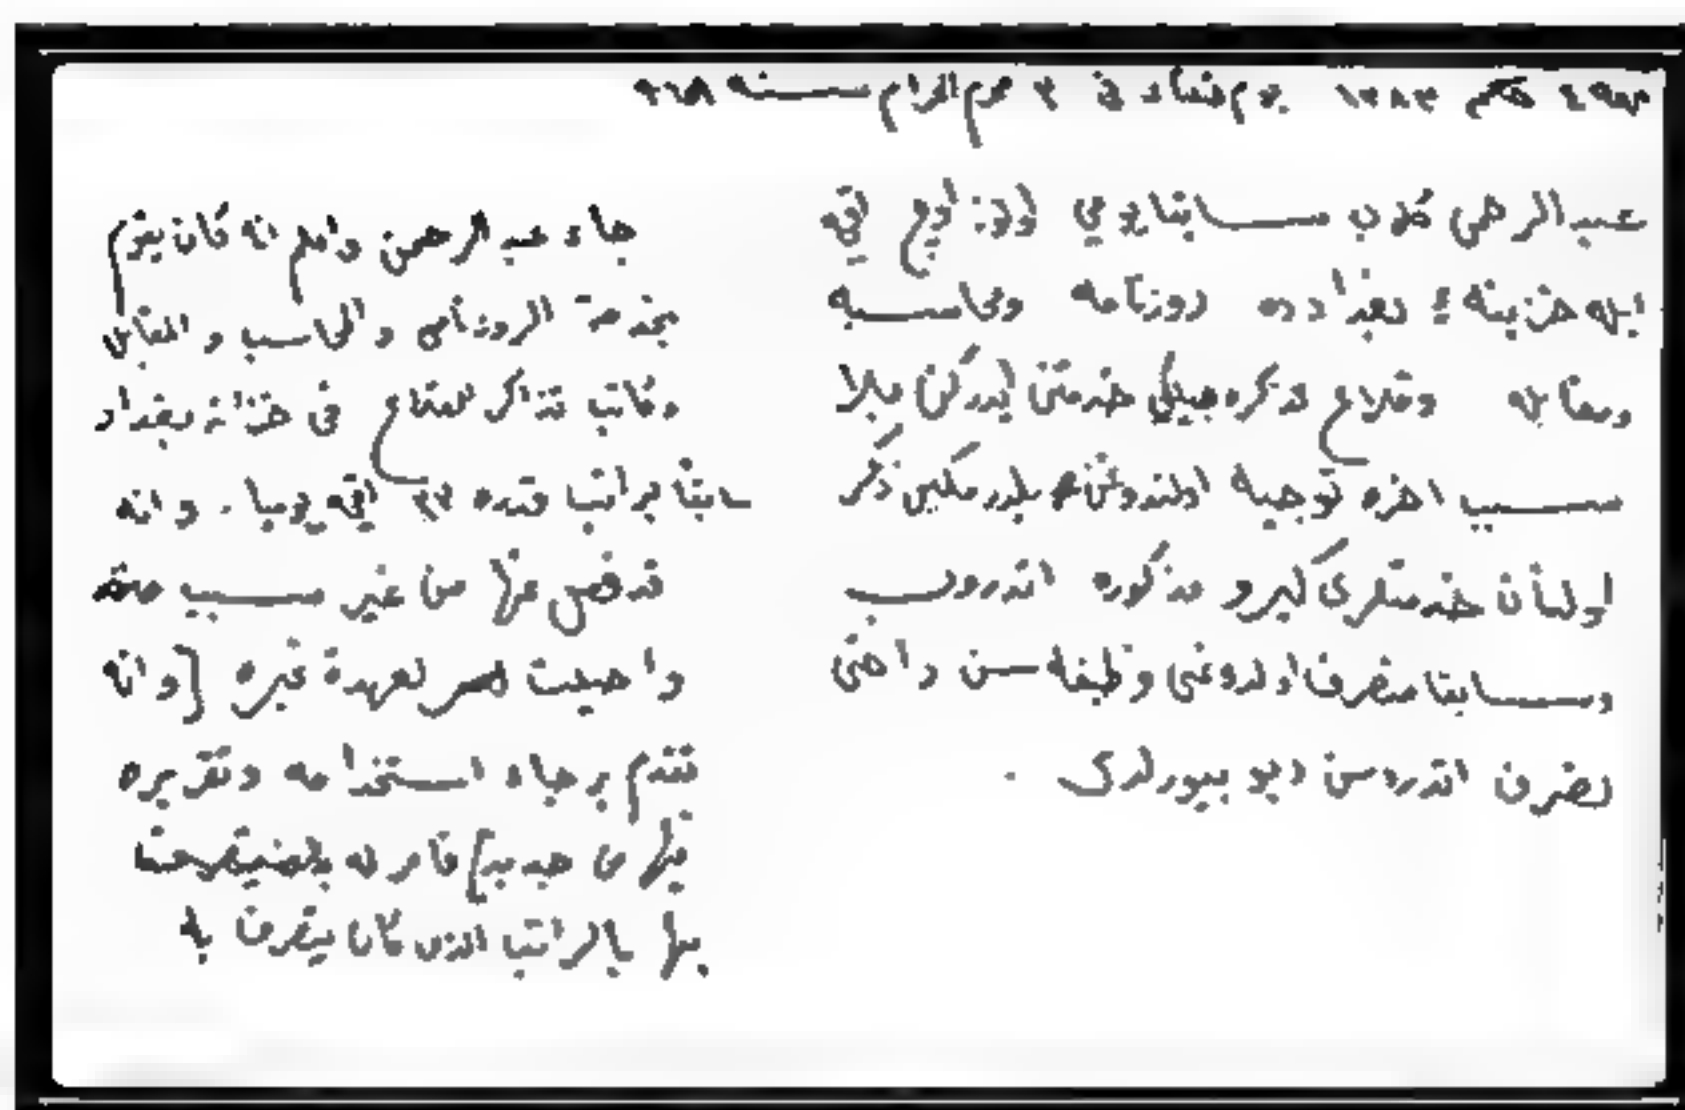 حكم ١٢٨٣ يوم في ٣ محرم الحرام سنه ٩٦٨
عبد الرحمن سابقا يومي اوتوز اقچه
ايله خزينهء بغداد ده روزنامه ومحاسبه
ومقابله وقلاع خدمتن ايدركن بلا
سبب اخره توجيه اولندوغن بلدرمكين ذكر
اولنان خدمتلرى كيرو مذكوره اتدروب
وسابقا متصرف اولدوغى وظيفه سن داخى
تصرف اتدره سن ديو بيورلدى .
جاء عبد الرحمن واعلم انه كان يقوم
بخدمة الروزنامه والمحاسبه والمقابله
وكاتب تذاكر القلاع في خزانة بغداد
سابقا براتب قدره اقچه يوميا . وانه
قد فصل عنها من غير سبب
واحيلت لعهدة غيره [وانه
تقدم برجاء استخدامه وتقريره
فيها من جديد] فامر له
بها بالراتب الذي كان يتصرف به